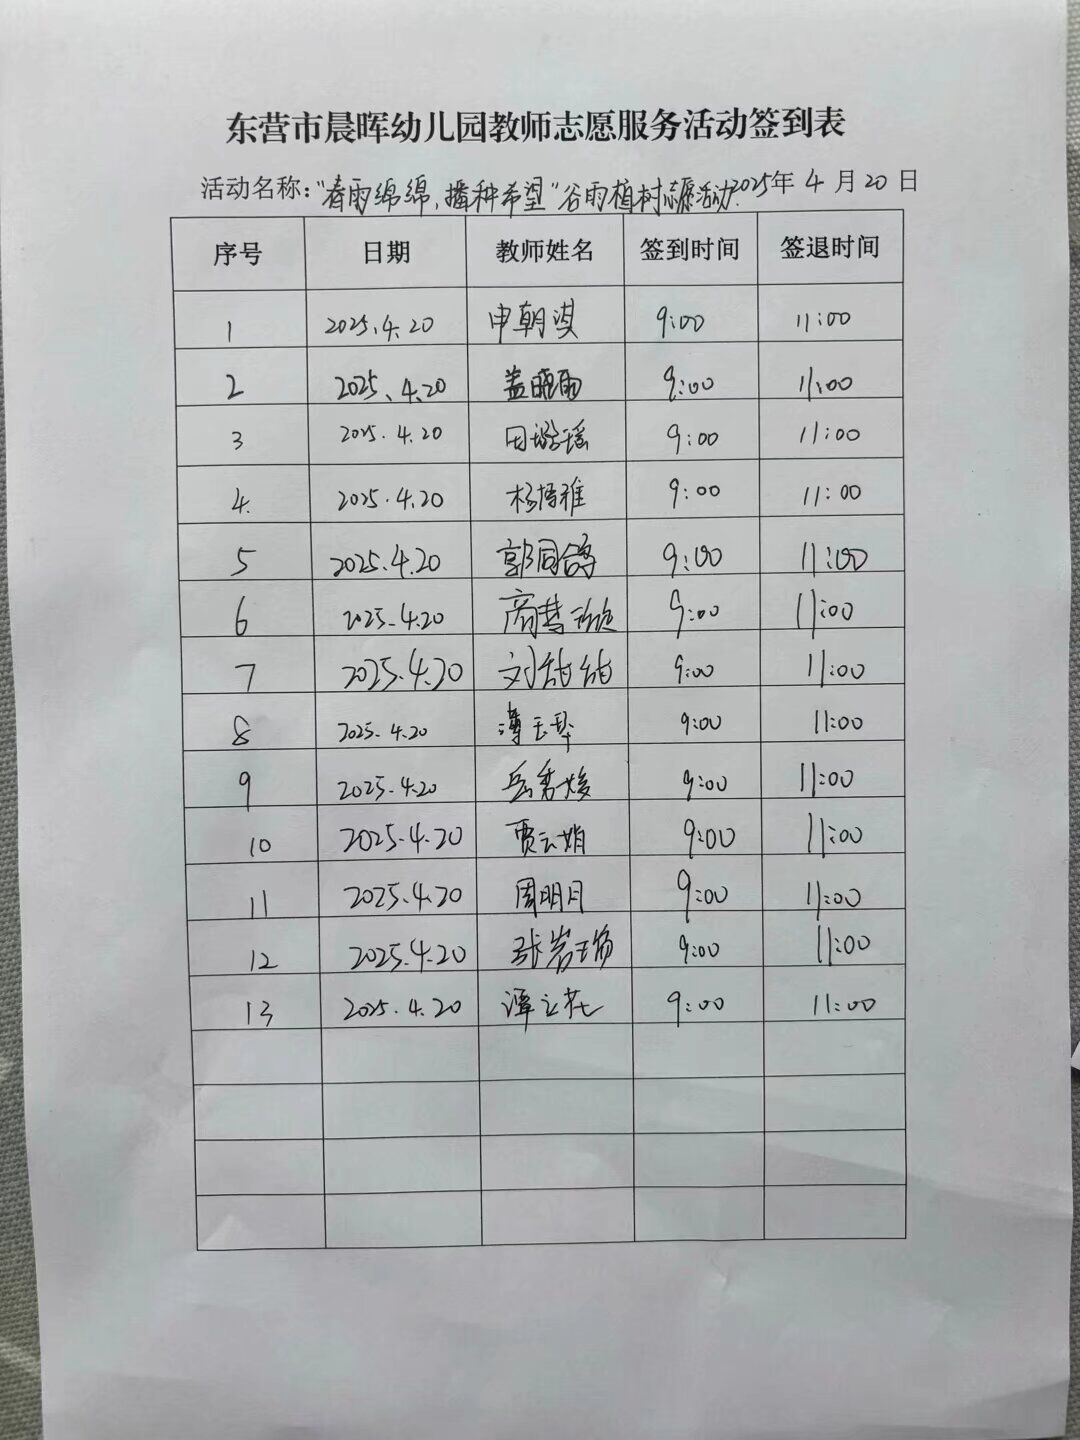 东营市晨晖幼儿园教师志愿服务活动签到表
活动名称:"春雨绵绵,播种希望"谷雨植树志愿活动.2025年 4 月 20 日
序号 日期 教师姓名 签到时间 签退时间
1 2025.4.20 申朝淇 9:00 11:00
2 2025.4.20 盖晓雨 9:00 11:00
3 2025.4.20 田璐瑶 9:00 11:00
4. 2025.4.20 杨博雅 9:00 11:00
5 2025.4.20 郭同鸽 9:00 11:00
6 2025.4.20 商梦 9:00 11:00
7 2025.4.20 刘甜甜 9:00 11:00
8 2025.4.20 薄玉琴 9:00 11:00
9 2025.4.20 岳秀姣 9:00 11:00
10 2025.4.20 贾云娟 9:00 11:00
11 2025.4.20 周明月 9:00 11:00
12 2025.4.20 张岩 9:00 11:00
13 2025.4.20 谭立花 9:00 11:00